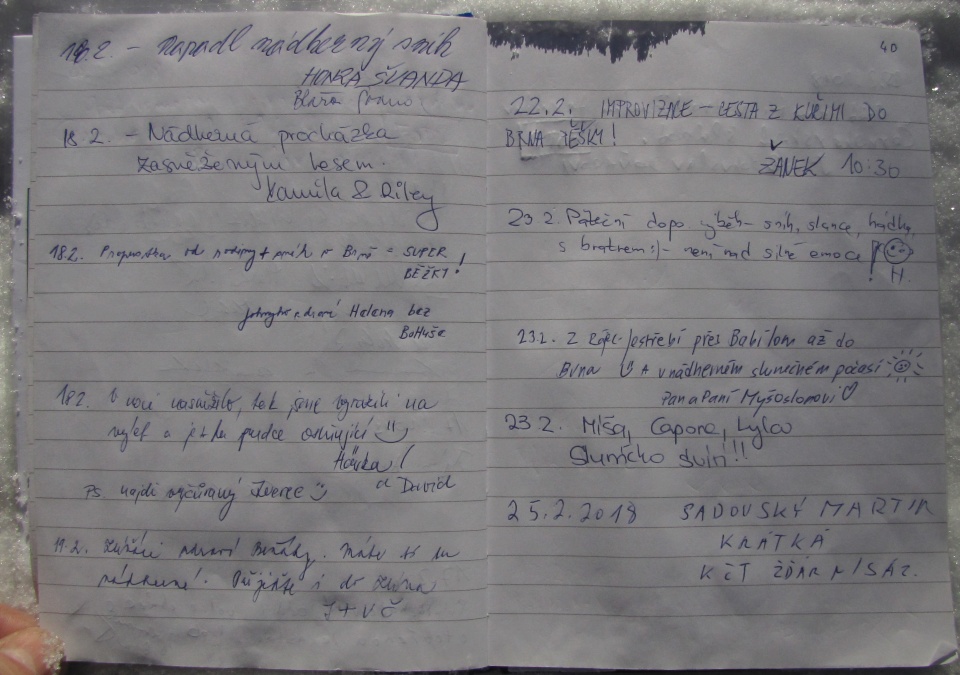 18.2. - napadl nádherný sníh
HONZA ŠVANDA
18.2. - Nádherná procházka
zasněženým lesem.
Kamila & Riley
18.2. sníh v Brně = SUPER
BĚŽKY!
Helena bez
Bohuše
18.2. V noci nasněžilo, tak jsme vyrazili na
výlet a je to prudce
a David
PS. najdi
19.2. zdraví Máte to tu
nádherné! Přijeďte i do
J+VČ
40
22.2. IMPROVIZACE - CESTA Z KUŘIMI DO
BRNA PĚŠKY!
ŽANEK 10:30
23.2. Páteční dopo výběh - sníh, slunce, hádky
s bratrem :/ - není nad silné emoce!
H.
23.2. Z Rájec-Jestřebí přes Babilom až do
Brna A v nádherném slunečném počasí
Pan a Paní Myšoslonovi
23.2. Míša, Capone, Kyla
Slunícko svítí!!
25.2.2018 SADOVSKÝ MARTIN
KRÁTKÁ
KČT ŽĎÁR N/SÁZ.